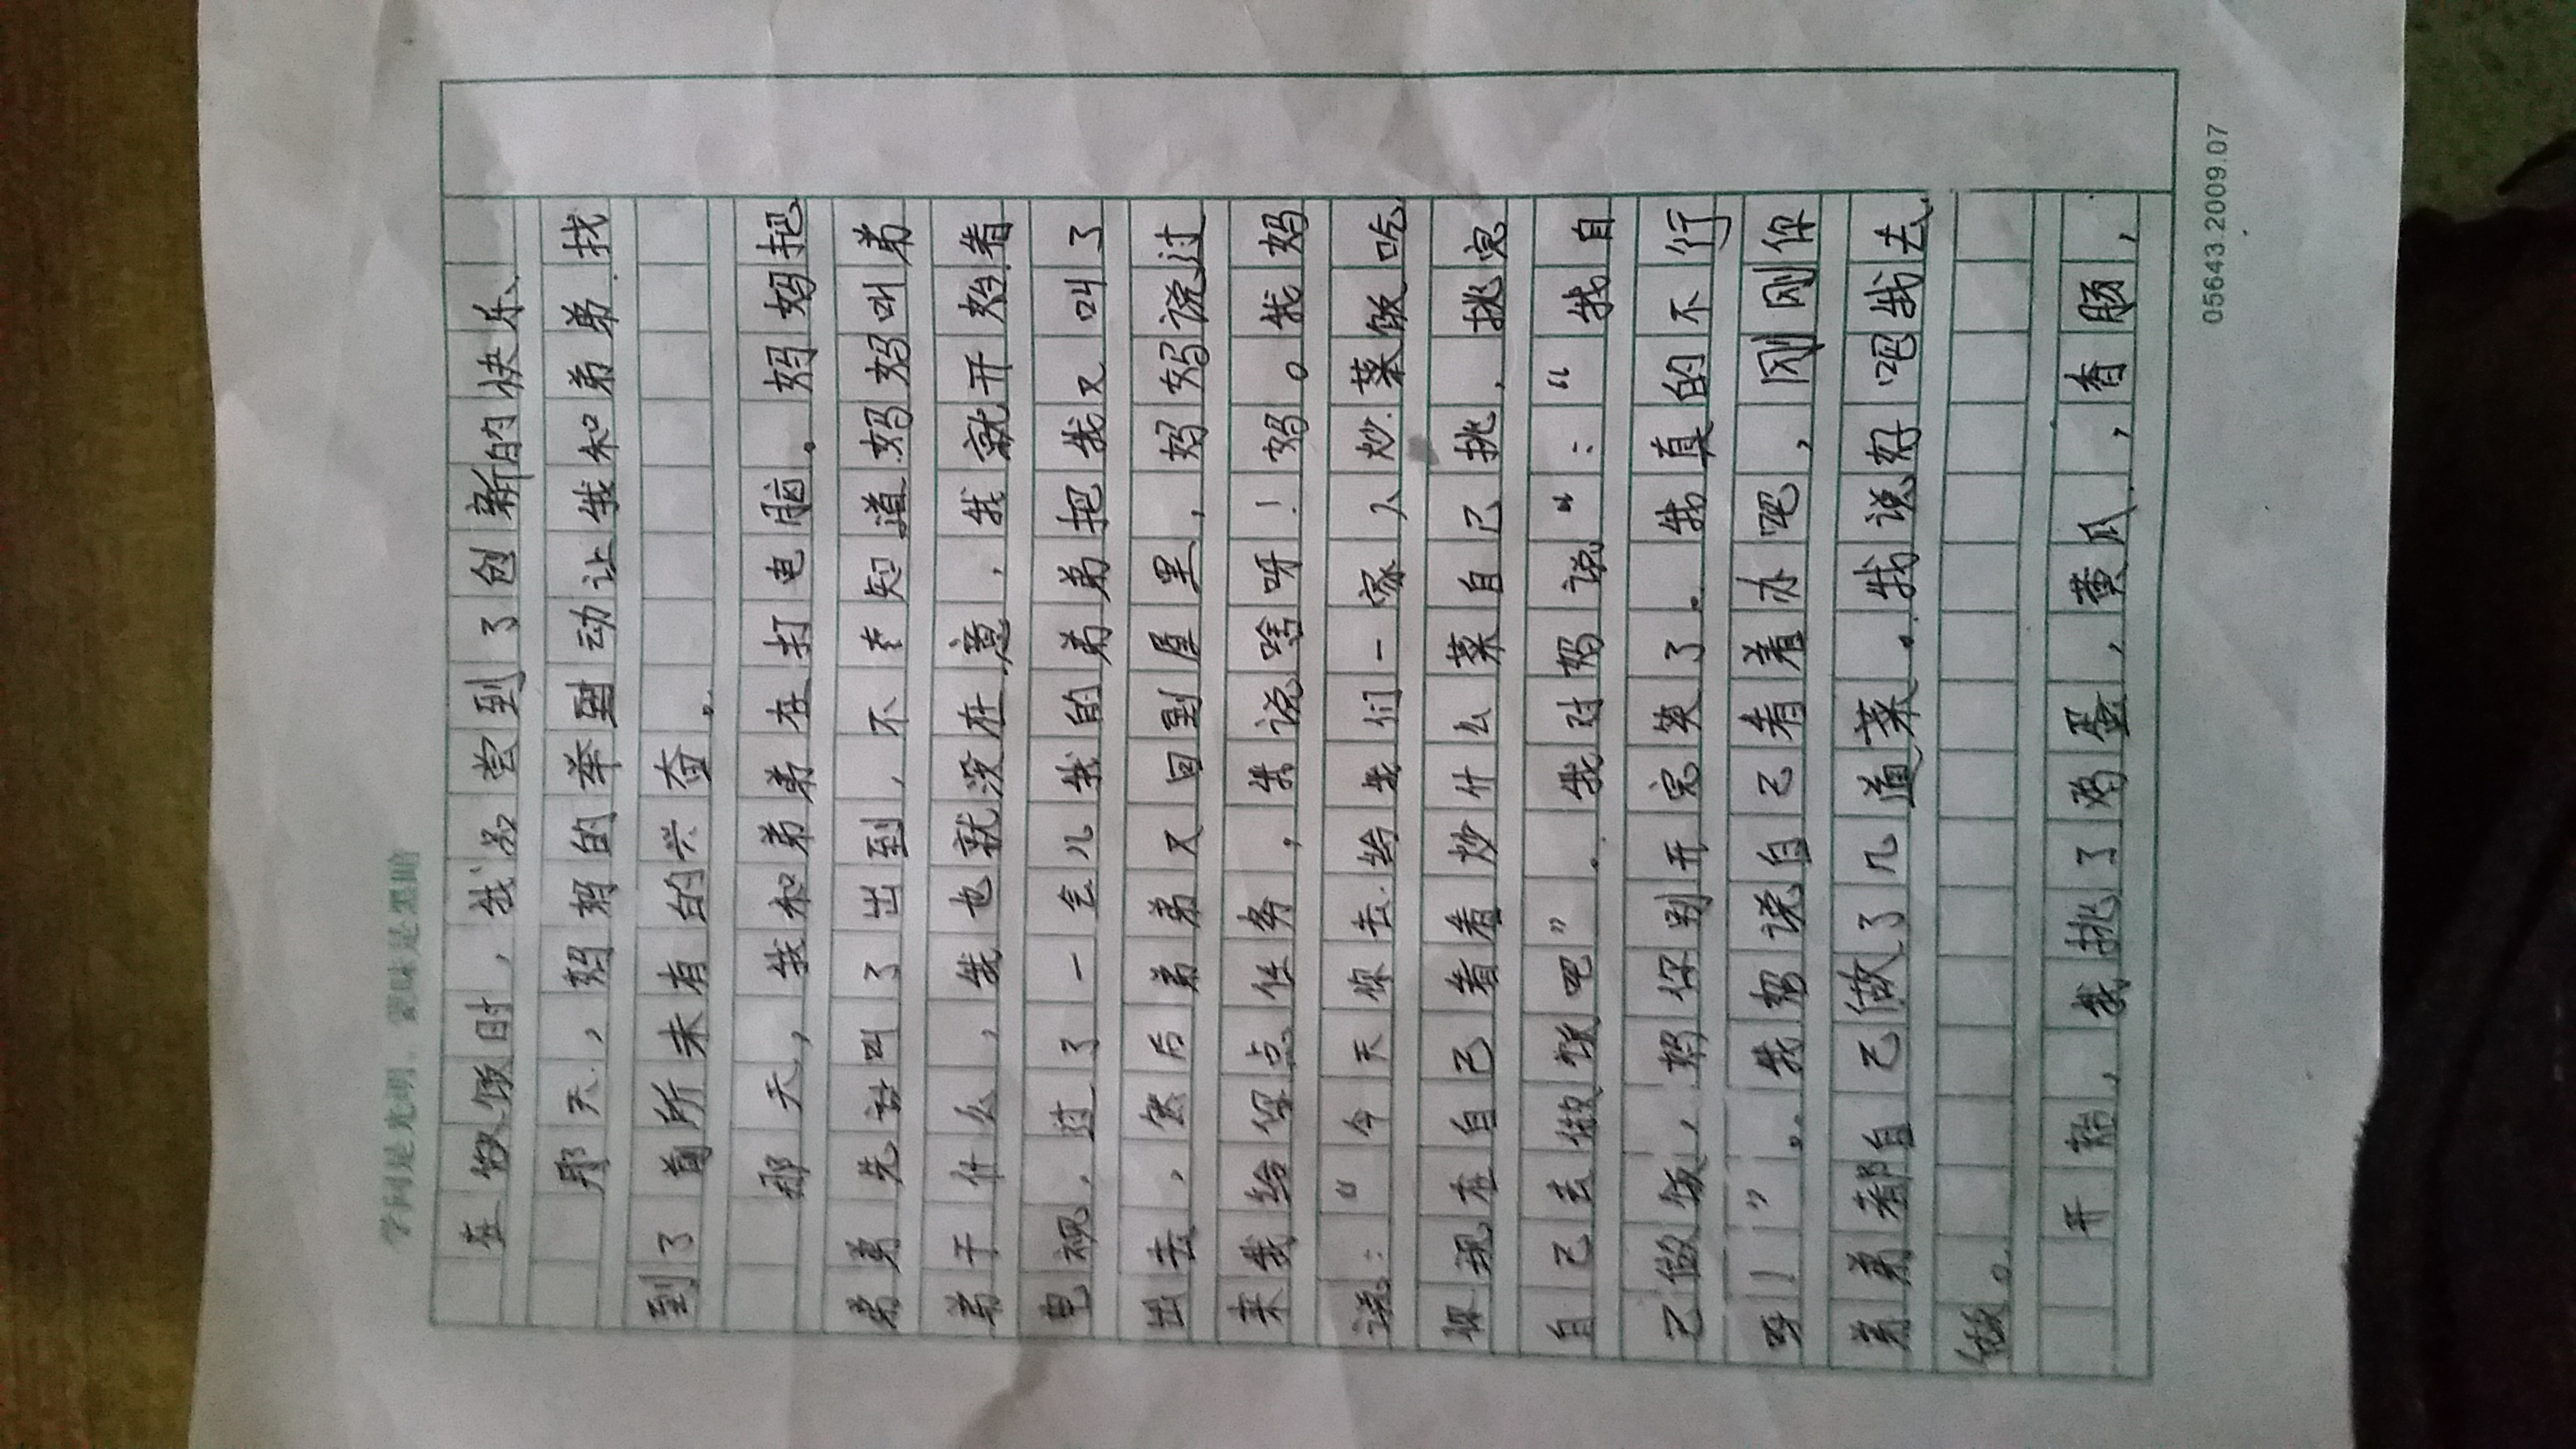 学问是光明，蒙昧是黑暗
在做饭时，我品尝到了创新的快乐、
那天，妈妈的举动让我和弟弟找
到了前所未有的兴奋。
那天，我和弟弟在打电脑。妈妈把
弟弟先叫了出到，不知道妈妈叫弟
弟干什么，我也就没在意，我就开始看
电视，过了一会儿我的弟弟把我又叫了
出去，然后弟弟又回到屋里，妈妈说过
来我给你点任务，我说啥呀！妈。我妈
说：“今天你去给我们一家人炒菜做饭吃
你现在自己看看炒什么菜自己挑，挑完
自己去做饭吧”。我对妈说“：“我自
己做饭，妈你别开完笑了。我真的不行
呀！”。我妈说自己看着办吧，刚刚你
弟弟都自己做了几道菜。我说好吧我去
做。
开始，我挑了鸡蛋，黄瓜，香肠，
05643.2009.07